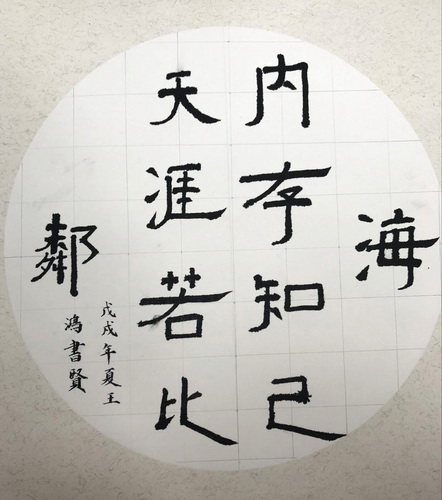 海
内存知己
天涯若比
鄰
戊戌年夏王
鴻書賢